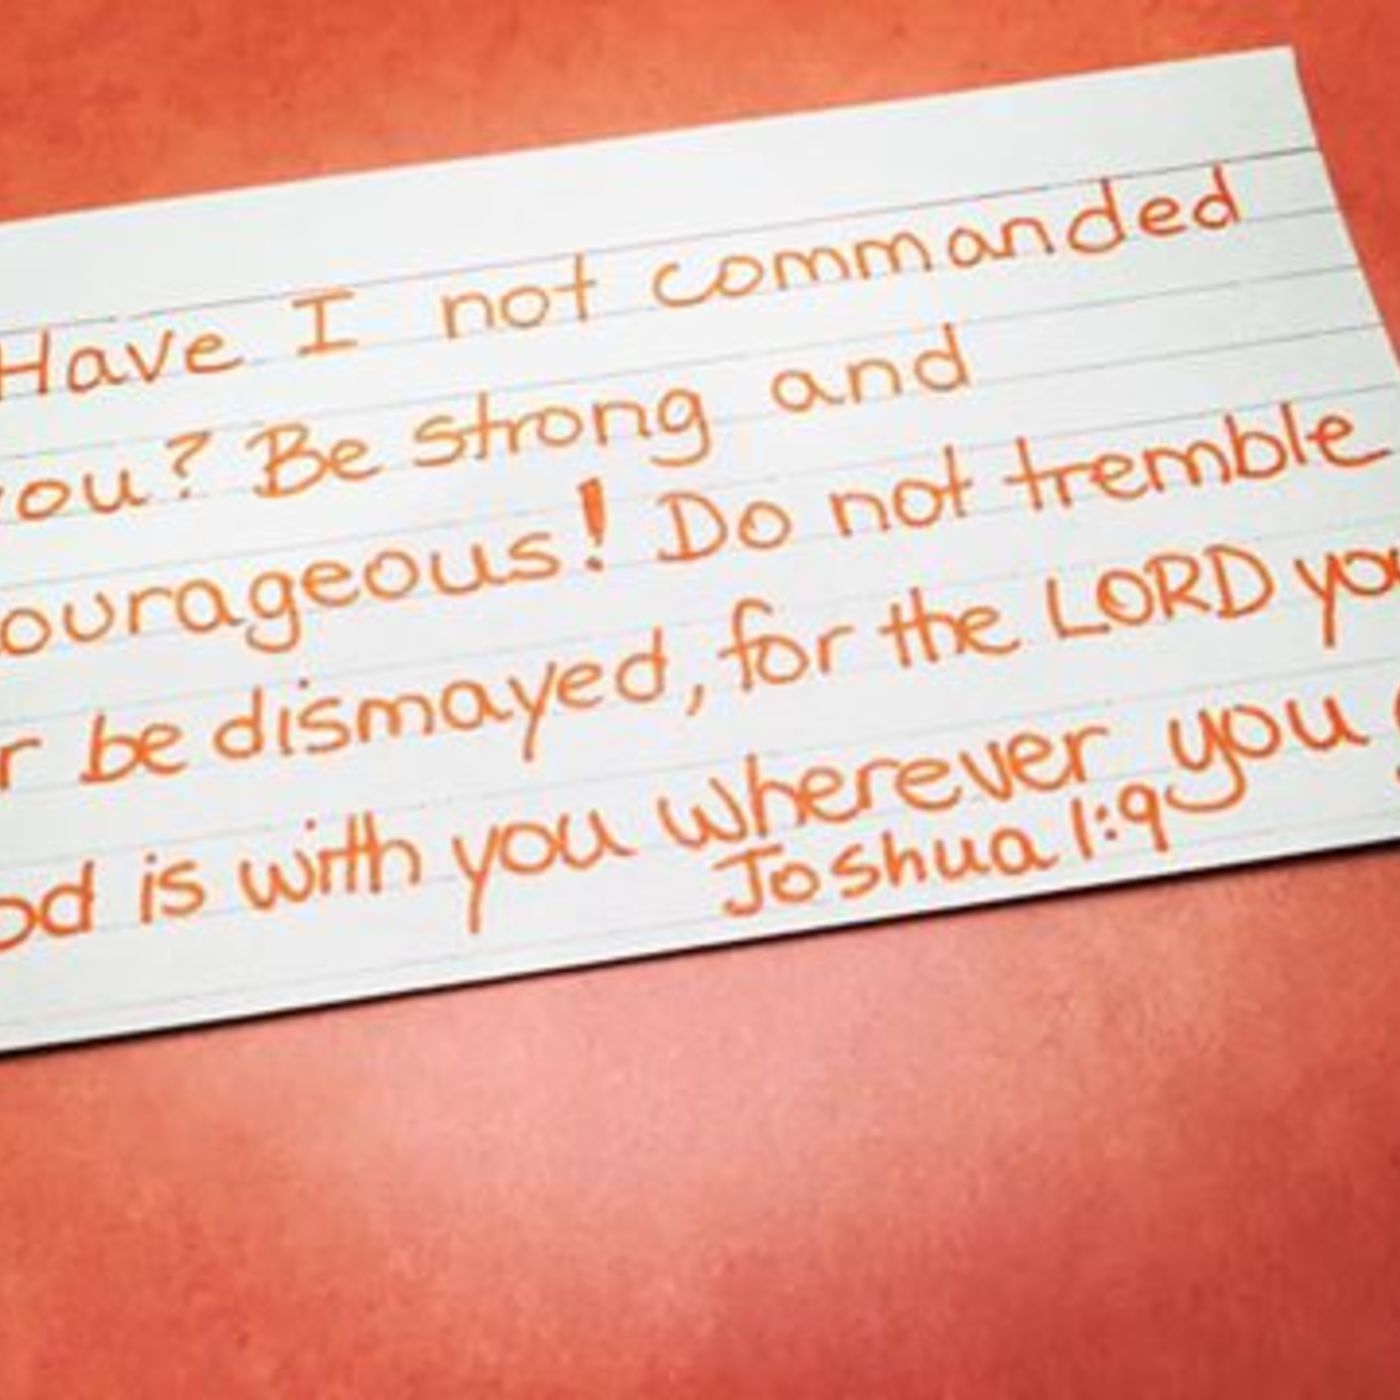 Have I not commanded
you? Be strong and
courageous! Do not tremble
or be dismayed, for the LORD your
God is with you wherever you
Joshua 1:9